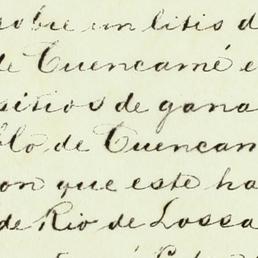 sobre un litis d
de Cuencamé e
sitios de gana
blo de Cuencam
on que este ha
de Rio de Lossa